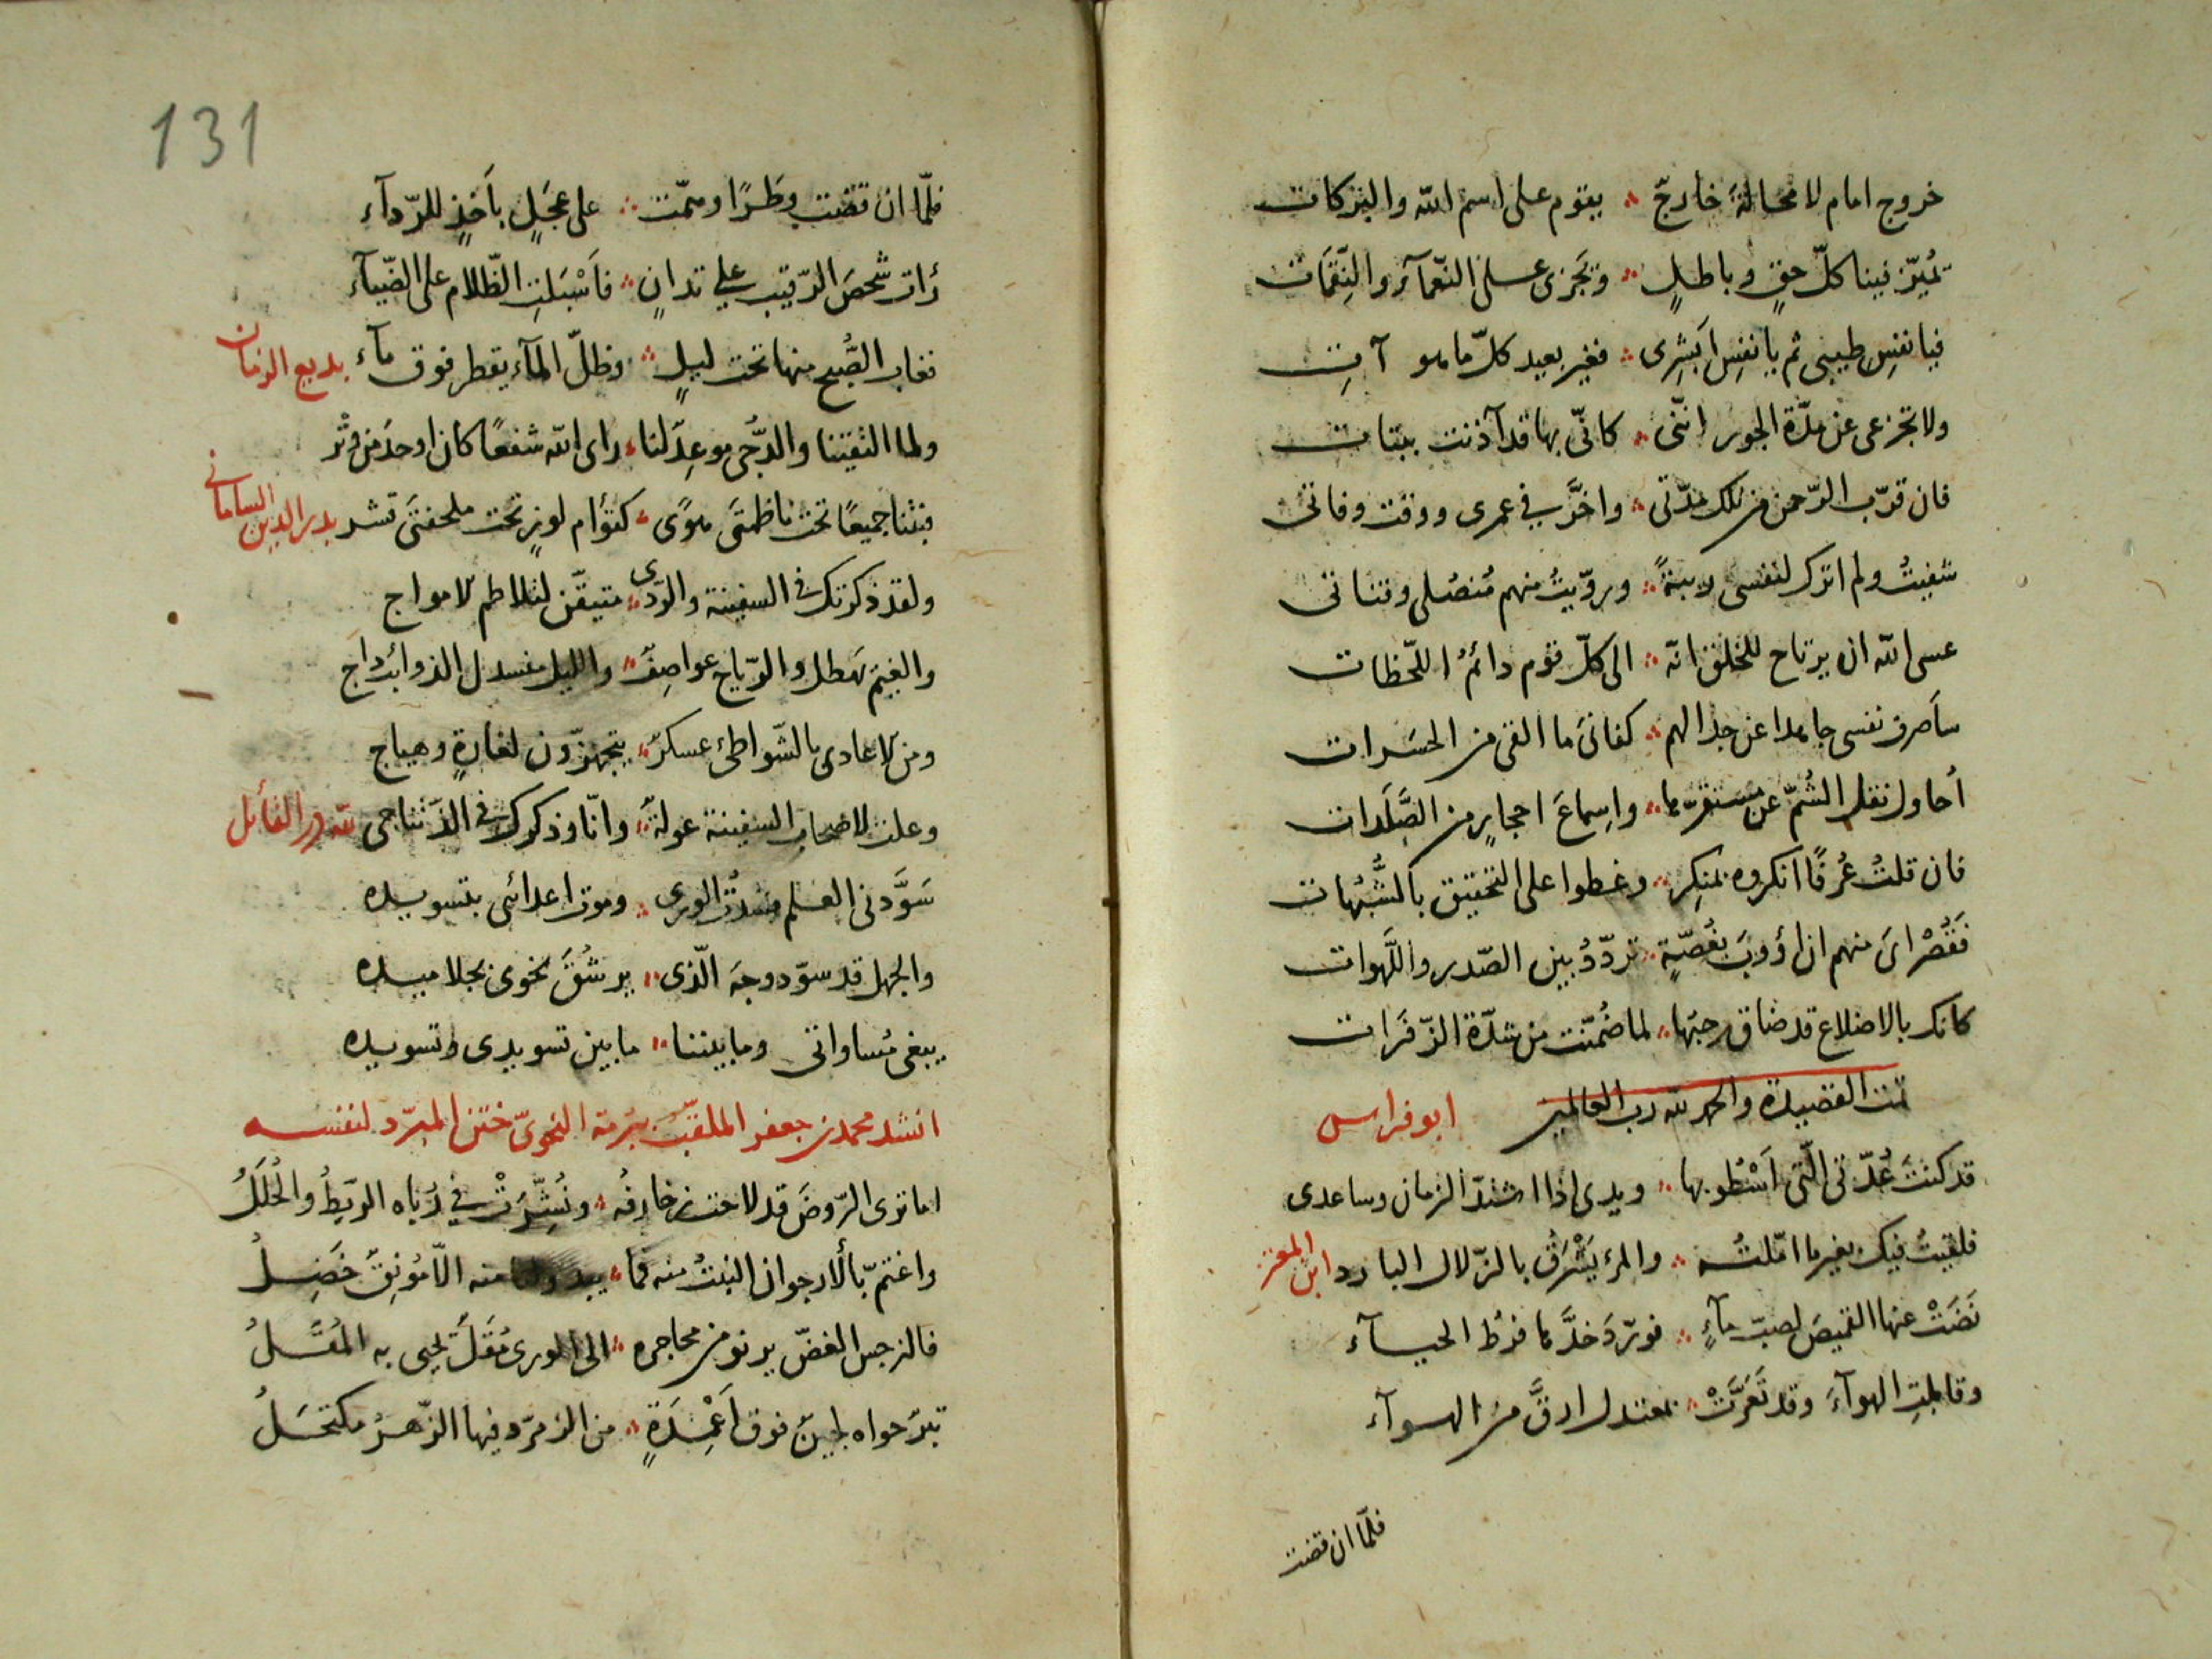 خروج امام لا محالة خارجٌ ∴ يقوم على اسم الله والبركات
تميّز فينا كلّ حقٍ وباطلٍ ∴ وتجزى على النّعمآء والنِّقَمات
فيا نفسِ طيبى ثم يا نفسِ اَبشِرِى ∴ فغير بعيد كلّ ما هو آتِ
ولا تجزعى عن مدّة الجور انّنى ∴ كانّى بها قد آذنت ببتات
فان قرّب الرّحمن من تلك مدّتى ∴ واخّر فى عمرى ووقت وفاتى
شفيتُ ولم اترك لنفسى ريبةً ∴ وروّيتُ منهم مُنصُلى وقناتى
عسى الله ان يرتاح للخلق انّه ∴ الى كلّ قوم دائمُ اللّحظات
سأصرف نفسى جاهدا عن جدالهم ∴ كفانىَ ما القى من الحسَرات
أحاول نقل الشُمّ عن مستقرّها ∴ واِسماعَ احجارٍ من الصَّلَدات
فان قلتُ عُرفًا انكروه بمنكِر ∴ وغطوا على التحقيق بالشُّبُهات
فقُصْراىَ منهم ان أؤوبَ بغُصّةٍ ∴ تردّدُ بين الصّدر واللَّهوات
كانك بالاضلاع قد ضاق رحبها ∴ لما ضُمّنت من شدّة الزّفَرات
تمت القصيدة والحمد لله رب العالمين ابو فراس
قد كنتَ عُدّتىَ الّتى اَسْطو بها ∴ ويدى اذا اشتدّ الزمان وساعدى
فلقيتُ فيك بغير ما امّلتُه ∴ والمرء يَشْرَقُ بالزّلال البارد ابن المعتز
نَضَتْ عنها القميصَ لصبّ مآءٍ ∴ فورّدَ خدَّها فرطُ الحيآء
وقابلتِ الهوآءَ وقد تَعَرَّتْ ∴ بمعتدل ارقَّ من الهوآء
فلمّا ان قضت
131
فلمّا ان قضت وطَرًا وهمّت ∴ على عجَلٍ باَخذٍ للرّدآء
رأت شخصَ الرّقيب على تدانٍ ∴ فاَسْبَلتِ الظّلام على الضّيآء
فغاب الصُّبح منها تحت ليلٍ ∴ وظلّ المآء يقطر فوق مآء بديع الزمان
ولما التقيتنا والدّجى موعِدٌ لنا ∴ راى الله شفعًا كان اوحدَ من وَتْر
فبتنا جميعًا تحت ناظمتَى هوًى ∴ كتوأم لوزٍ تحت ملحفتَى قشر بدر الدين الساماني
ولقد ذكرتك فى السفينة والرّدى ∴ متيقّن لتلاطم الامواج
والغيمُ يهطل والرّياح عواصِفٌ ∴ والليل منسدل الذوائب داج
ومن الاعادى بالشّواطئ عسكرٌ ∴ يتجهزّون لغارةٍ وهياج
وعلت لاصحاب السفينة عولةٌ ∴ وانا وذكرك فى الذّ تناجى لله در القائل
سَوَّدنى العلم فسُدْتُ الورى ∴ وموت اعدائى بتسويده
والجهل قد سوّد وجهَ الّذى ∴ يرشُقُ نحوى بجلاميده
يبغى مُساواتى وما بيننا ∴ ما بين تسويدى وتسويده
انشد محمد بن جعفر الملقّب ببرمة النحوىّ ختن المبرّد لنفسه
اما ترى الرّوضَ قد لاحت زخارفُه ∴ ونُشِّرَتْ فى رُباه الريَطُ والحُلَلُ
واعتمّ بالأرجوان النبتُ منه فما ∴ يبدو لنا منه الاّ مُونِقٌ خَضِلُ
فالنرجس الغضّ يرنو من محاجره ∴ الى الورى مُقَلٌ تحيى به المُقَلُ
تبرٌ حواه لجينٌ فوق اَعْمِدَةٍ ∴ من الزمرّد فيها الزّهرُ مكتحَلُ